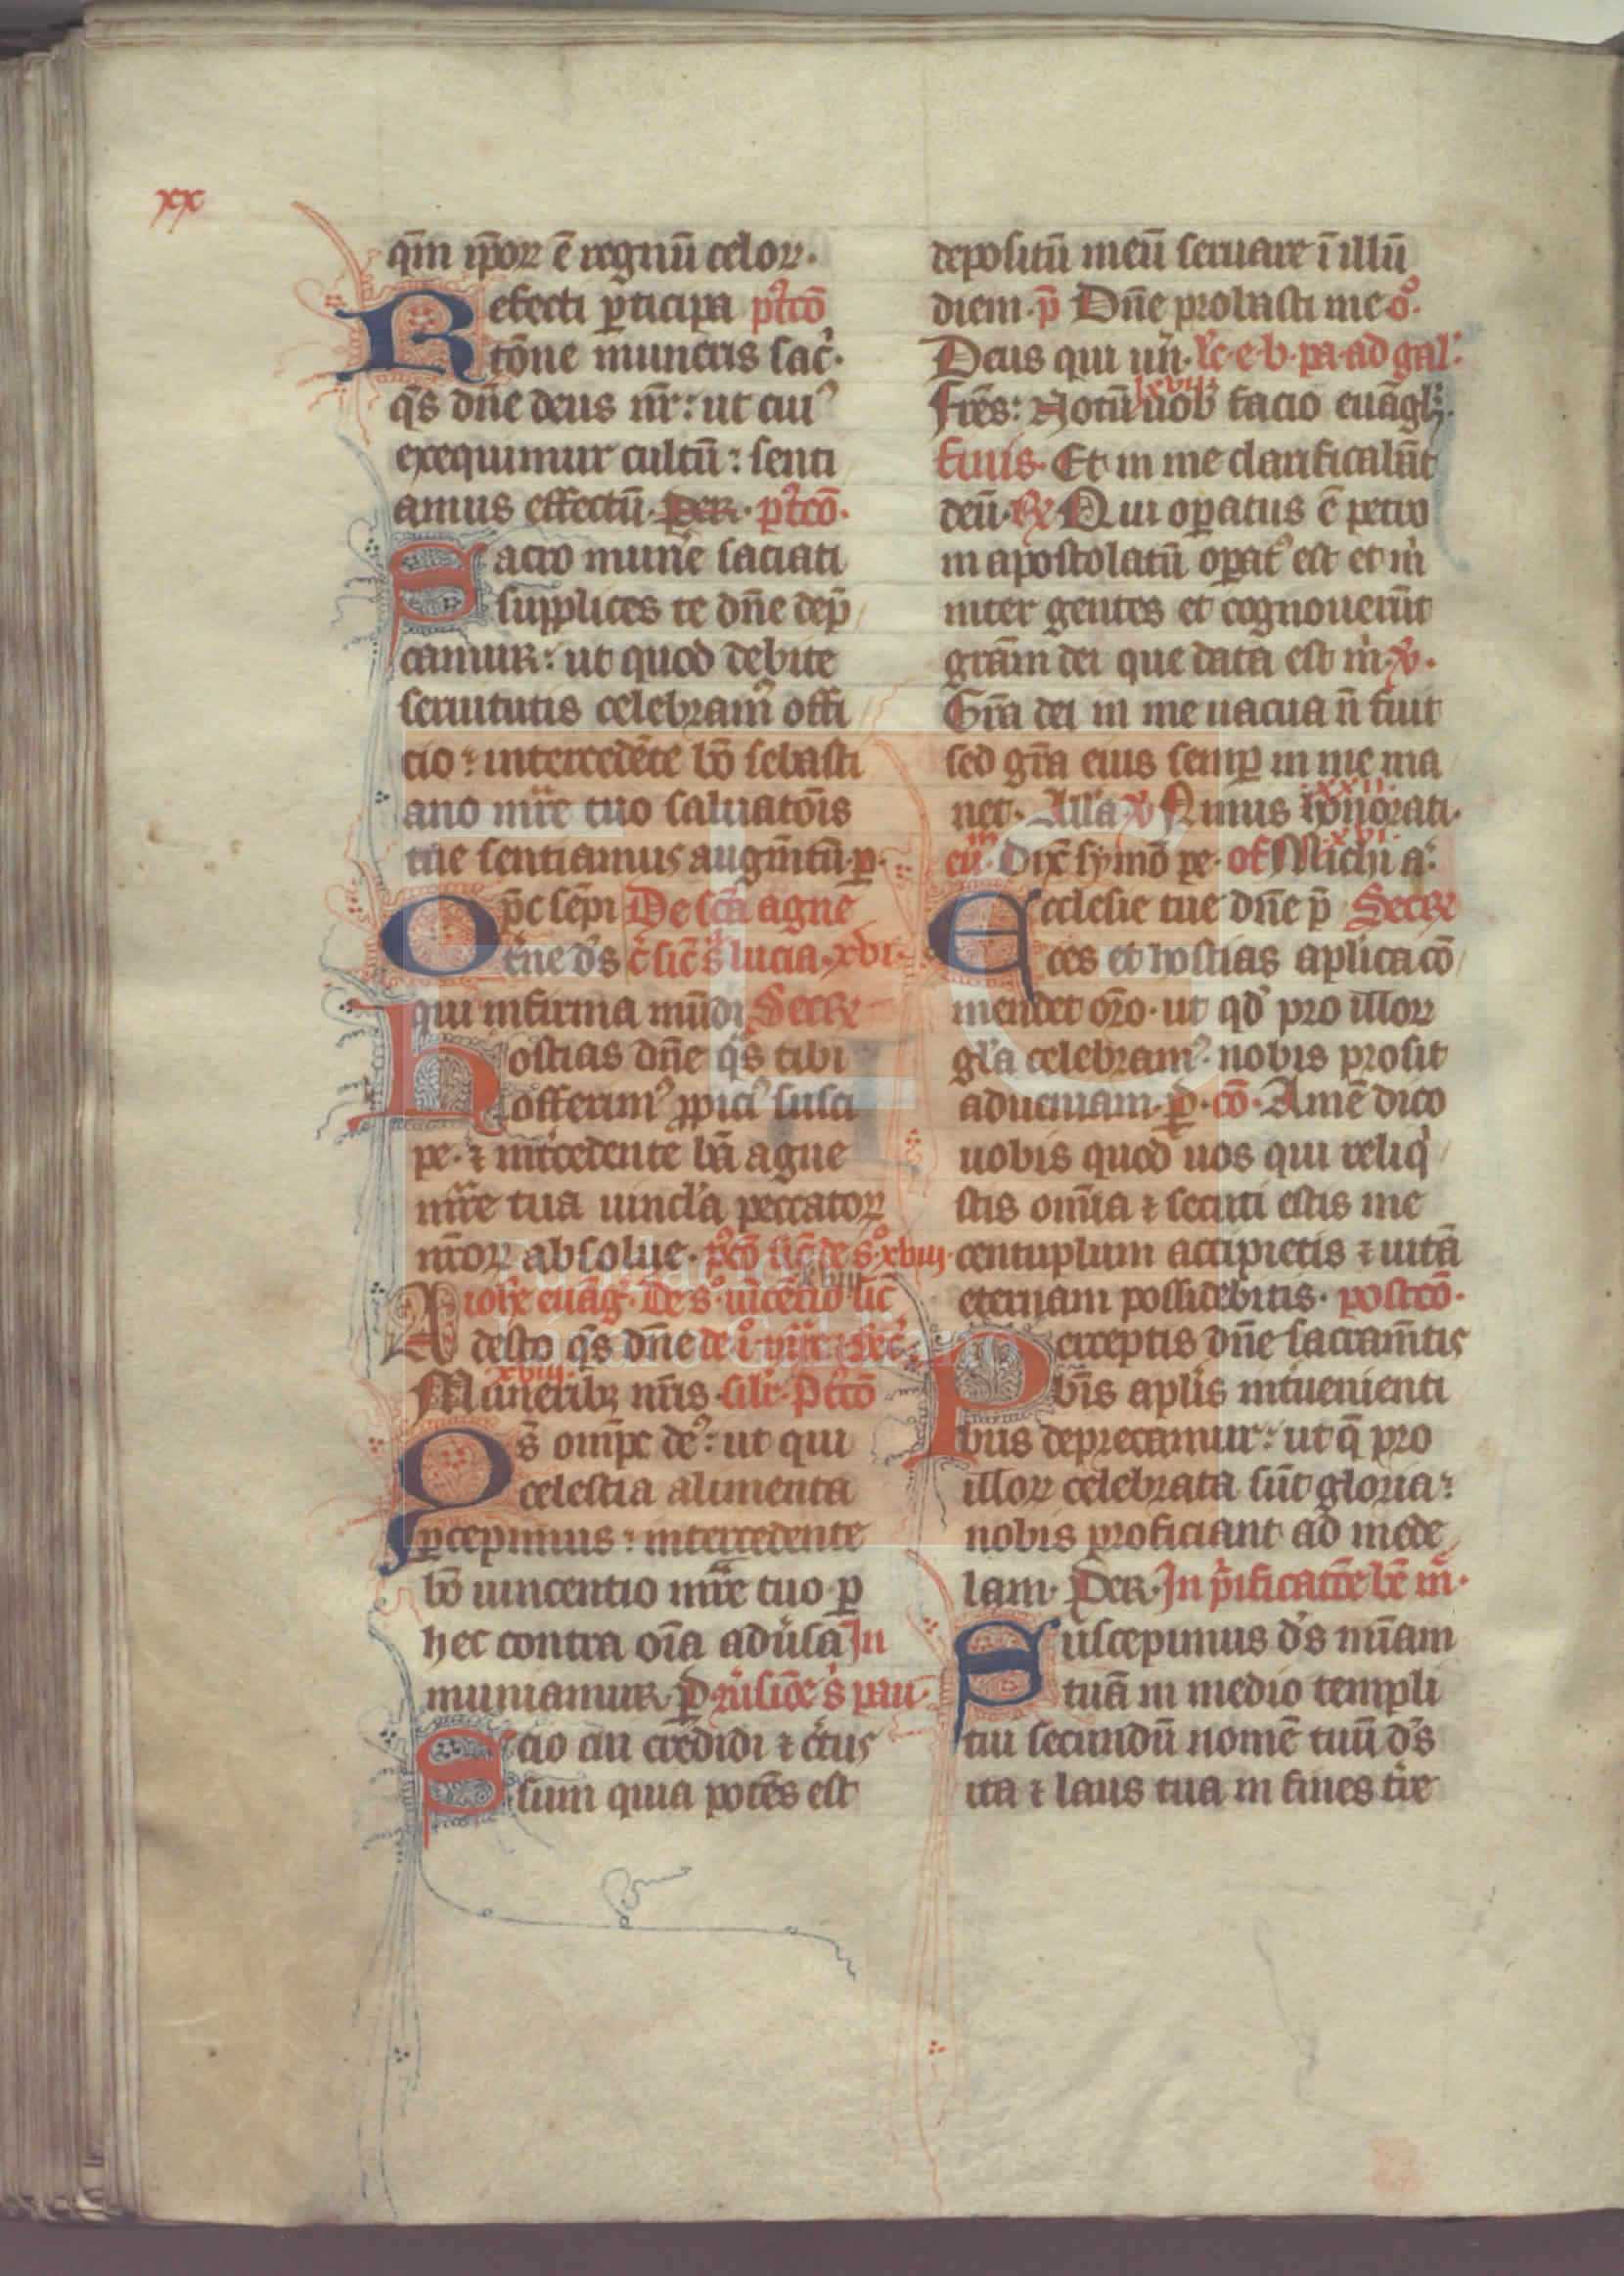 xx
qm̄ ip̄oꝝ ē regnū celoꝝ.
Refecti ꝑticipa p̄tcō
tōne muneris sac̄.
q̄s dn̄e deus nr̄: ut cui9
exequimur cultū: senti
amus effectū. per. p̄tcō.
Sacro mune saciati
supplices te dn̄e dep̄
camur: ut quod debite
seruitutis celebram9 offi
cio: intercedēte bō sebasti
ano mr̄e tuo saluatōis
tue sentiamus augm̄tū. p.
Op̄c sēpi De sc̄a agne
t̄ne d̄s ō sic̄ s̄ lucia. xvi.
qui infirma mūdi Secr̄
hostias dn̄e q̄s tibi
offerim9 ꝓpici9 susci
pe. ⁊ int̄cedente bā agne
mr̄e tua uincl̄a peccatoꝝ
nr̄oꝝ absolue. p̄cō sic̄ de s̄o xviij.
xviij
De s̄o uicēcio sic̄
Adesto q̄s dn̄e
xviij.
Munerib; nr̄is. sil̄r. P̄tcō
Qs̄ om̄pc de9: ut qui
celestia alimenta
ꝑcepimus: intercedente
bō uincentio mr̄e tuo ꝑ
hec contra oīa adūsa In
muniamur. ꝑ. ūsiōe s̄ pau.
Scio cui credidi ⁊ c̄tus
sum quia potēs est
depositū meū seruare ī illū
diem. p̄ Dn̄e probasti me o̊.
Deus qui un̄. lc̄. e. b. pa. ad gal.
lxviij
Fr̄es: Notū uob facio euāgl;.
finis. Et in me clarificabāt
deū. ℞ Qui oꝑatus ē petro
in apostolatū oꝑat9 est et m̄
inter gentes et cognouerūt
grām dei que data est m̄. ꝟ.
Grā dei in me uacua n̄ fuit
sed grā eius semꝑ in me ma
xxii.
net. Alla ꝟ Nimus honorati.
xvi.
eu̅. Dix̄ symō pe. of Michi a:
Ecclesie tue dn̄e p̄ Secr̄
ces et hostias aplica cō
mendet orō. ut qd̄ pro illoꝝ
gl̄a celebram9. nobis prosit
adueniam. ꝑ. cō. Amē dico
uobis quod uos qui reliq̄
stis om̄ia ⁊ secuti estis me
centuplum accipietis ⁊ uitā
eternam possidebitis. postcō.
Perceptis dn̄e sacram̄tis
bīs apl̄is int̄uenienti
bus deprecamur: ut q̄ pro
illoꝝ celebrata sūt gloria:
nobis proficiant ad mede
lam. Per. In p̄ificatiōe bē m̄.
Suscepimus d̄s mīam
tuā in medio templi
tui secundū nomē tuū d̄s
ita ⁊ laus tua in fines tr̄e